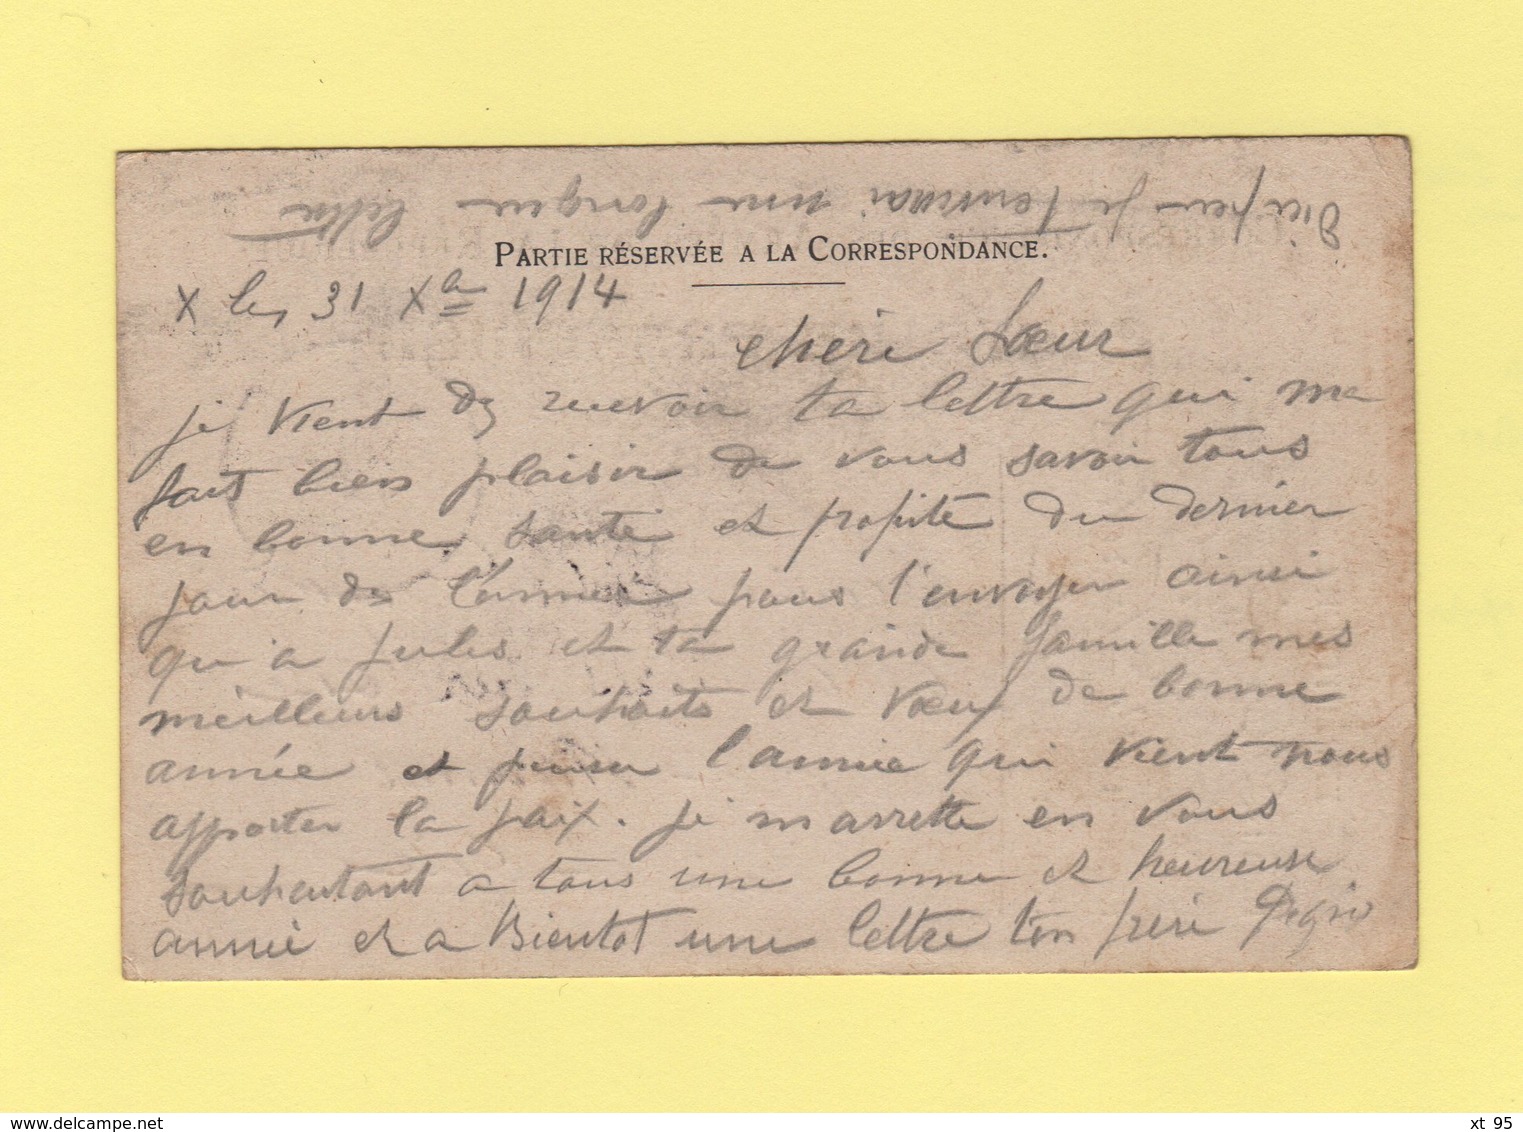 D'ici peu je une longue lettre
PARTIE RÉSERVÉE A LA CORRESPONDANCE.
X les 31 Xbre 1914
chéri Sœur
je vient de recevoir ta lettre qui ma
fait bien plaisir de vous savoir tous
en bonne santé et profite du dernier
jour de l'année pour t'envoyer ainsi
qu'a Jules et ta grande famille mes
meilleurs souhaits et vœux de bonne
année et puisse l'année qui vient nous
apporter la paix. je marrette en vous
souhaitant a tous une bonne et heureuse
année et a Bientot une lettre ton frère
xt 95
www.delcampe.net